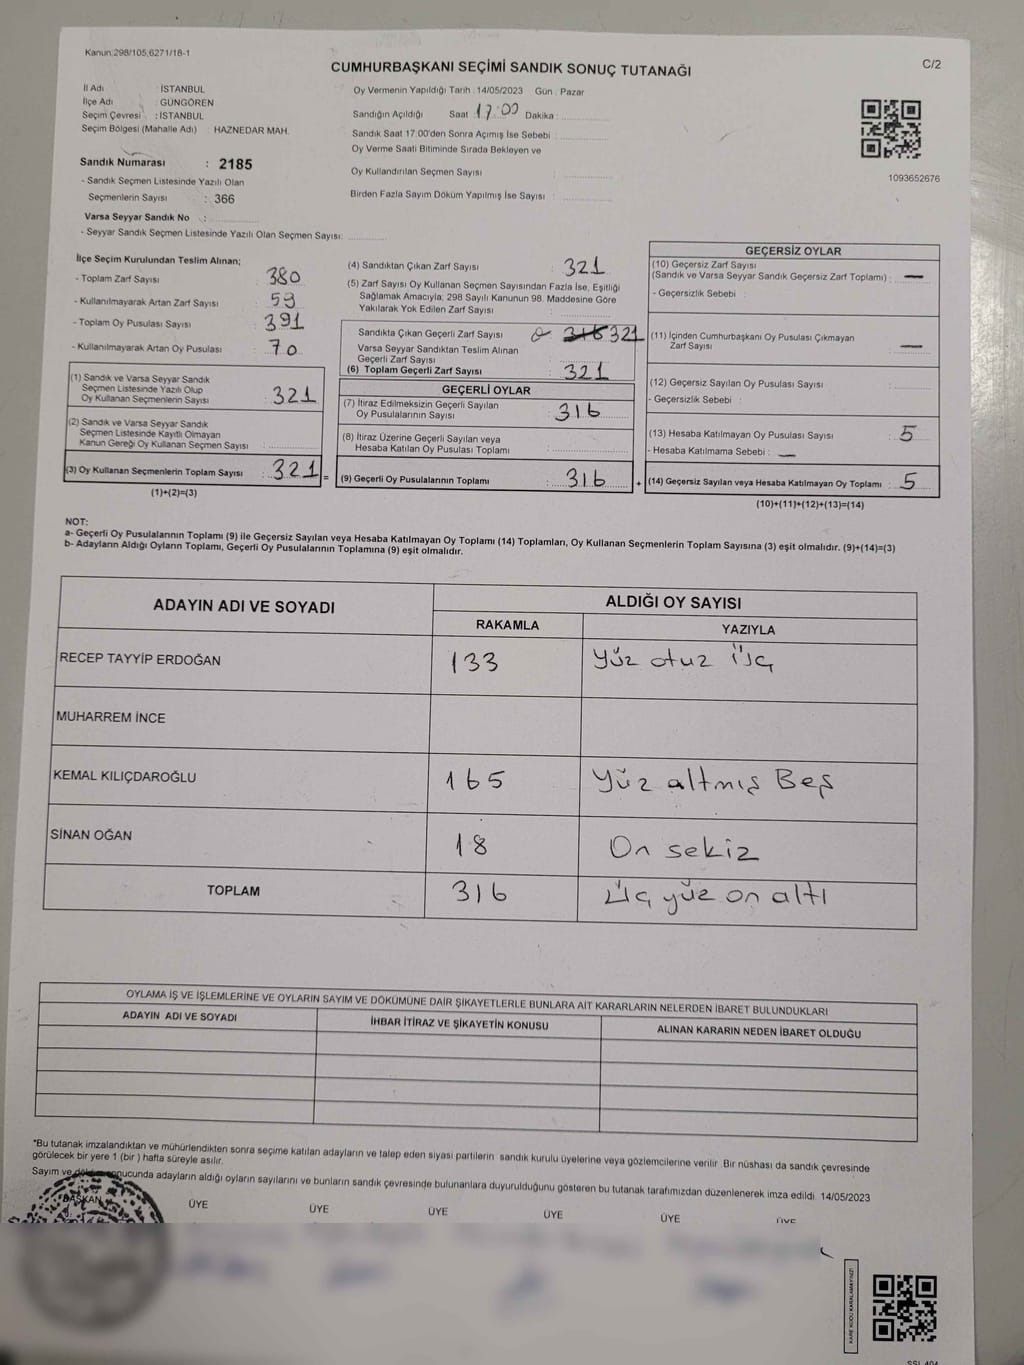 Kanun;298/105,6271/18-1
C/2
CUMHURBAŞKANI SEÇİMİ SANDIK SONUÇ TUTANAĞI
İl Adı : İSTANBUL
İlçe Adı : GÜNGÖREN
Seçim Çevresi : İSTANBUL
Seçim Bölgesi (Mahalle Adı) : HAZNEDAR MAH.
Oy Vermenin Yapıldığı Tarih : 14/05/2023 Gün : Pazar
Sandığın Açıldığı Saat 17:00 Dakika :
Sandık Saat 17:00'den Sonra Açımış İse Sebebi :
Oy Verme Saati Bitiminde Sırada Bekleyen ve
Oy Kullandırılan Seçmen Sayısı :
Birden Fazla Sayım Döküm Yapılmış İse Sayısı :
1093652676
Sandık Numarası : 2185
- Sandık Seçmen Listesinde Yazılı Olan
Seçmenlerin Sayısı : 366
Varsa Seyyar Sandık No :
- Seyyar Sandık Seçmen Listesinde Yazılı Olan Seçmen Sayısı:
İlçe Seçim Kurulundan Teslim Alınan;
- Toplam Zarf Sayısı : 380
- Kullanılmayarak Artan Zarf Sayısı : 59
- Toplam Oy Pusulası Sayısı : 391
- Kullanılmayarak Artan Oy Pusulası : 70
(1) Sandık ve Varsa Seyyar Sandık
Seçmen Listesinde Yazılı Olup
Oy Kullanan Seçmenlerin Sayısı : 321
(2) Sandık ve Varsa Seyyar Sandık
Seçmen Listesinde Kayıtlı Olmayan
Kanun Gereği Oy Kullanan Seçmen Sayısı :
(3) Oy Kullanan Seçmenlerin Toplam Sayısı : 321 =
(1)+(2)=(3)
(4) Sandıktan Çıkan Zarf Sayısı : 321
(5) Zarf Sayısı Oy Kullanan Seçmen Sayısından Fazla İse, Eşitliği
Sağlamak Amacıyla; 298 Sayılı Kanunun 98. Maddesine Göre
Yakılarak Yok Edilen Zarf Sayısı :
Sandıkta Çıkan Geçerli Zarf Sayısı 316 321
Varsa Seyyar Sandıktan Teslim Alınan
Geçerli Zarf Sayısı
(6) Toplam Geçerli Zarf Sayısı : 321
GEÇERLİ OYLAR
(7) İtiraz Edilmeksizin Geçerli Sayılan
Oy Pusulalarının Sayısı : 316
(8) İtiraz Üzerine Geçerli Sayılan veya
Hesaba Katılan Oy Pusulası Toplamı :
(9) Geçerli Oy Pusulalarının Toplamı : 316 +
GEÇERSİZ OYLAR
(10) Geçersiz Zarf Sayısı
(Sandık ve Varsa Seyyar Sandık Geçersiz Zarf Toplamı) : —
- Geçersizlik Sebebi :
(11) İçinden Cumhurbaşkanı Oy Pusulası Çıkmayan
Zarf Sayısı : —
(12) Geçersiz Sayılan Oy Pusulası Sayısı :
- Geçersizlik Sebebi :
(13) Hesaba Katılmayan Oy Pusulası Sayısı : 5
- Hesaba Katılmama Sebebi : —
(14) Geçersiz Sayılan veya Hesaba Katılmayan Oy Toplamı : 5
(10)+(11)+(12)+(13)=(14)
NOT:
a- Geçerli Oy Pusulalarının Toplamı (9) ile Geçersiz Sayılan veya Hesaba Katılmayan Oy Toplamı (14) Toplamları, Oy Kullanan Seçmenlerin Toplam Sayısına (3) eşit olmalıdır. (9)+(14)=(3)
b- Adayların Aldığı Oyların Toplamı, Geçerli Oy Pusulalarının Toplamına (9) eşit olmalıdır.
ADAYIN ADI VE SOYADI
ALDIĞI OY SAYISI
RAKAMLA YAZIYLA
RECEP TAYYİP ERDOĞAN 133 Yüz otuz üç
MUHARREM İNCE
KEMAL KILIÇDAROĞLU 165 Yüz altmış Beş
SİNAN OĞAN 18 On sekiz
TOPLAM 316 Üç yüz on altı
OYLAMA İŞ VE İŞLEMLERİNE VE OYLARIN SAYIM VE DÖKÜMÜNE DAİR ŞİKAYETLERLE BUNLARA AİT KARARLARIN NELERDEN İBARET BULUNDUKLARI
ADAYIN ADI VE SOYADI İHBAR İTİRAZ VE ŞİKAYETİN KONUSU ALINAN KARARIN NEDEN İBARET OLDUĞU
*Bu tutanak imzalandıktan ve mühürlendikten sonra seçime katılan adayların ve talep eden siyasi partilerin sandık kurulu üyelerine veya gözlemcilerine verilir. Bir nüshası da sandık çevresinde
görülecek bir yere 1 (bir) hafta süreyle asılır.
Sayım ve döküm sonucunda adayların aldığı oyların sayılarını ve bunların sandık çevresinde bulunanlara duyurulduğunu gösteren bu tutanak tarafımızdan düzenlenerek imza edildi. 14/05/2023
BAŞKAN ÜYE ÜYE ÜYE ÜYE ÜYE ÜYE
KARE KODU KARALAMAYINIZ!